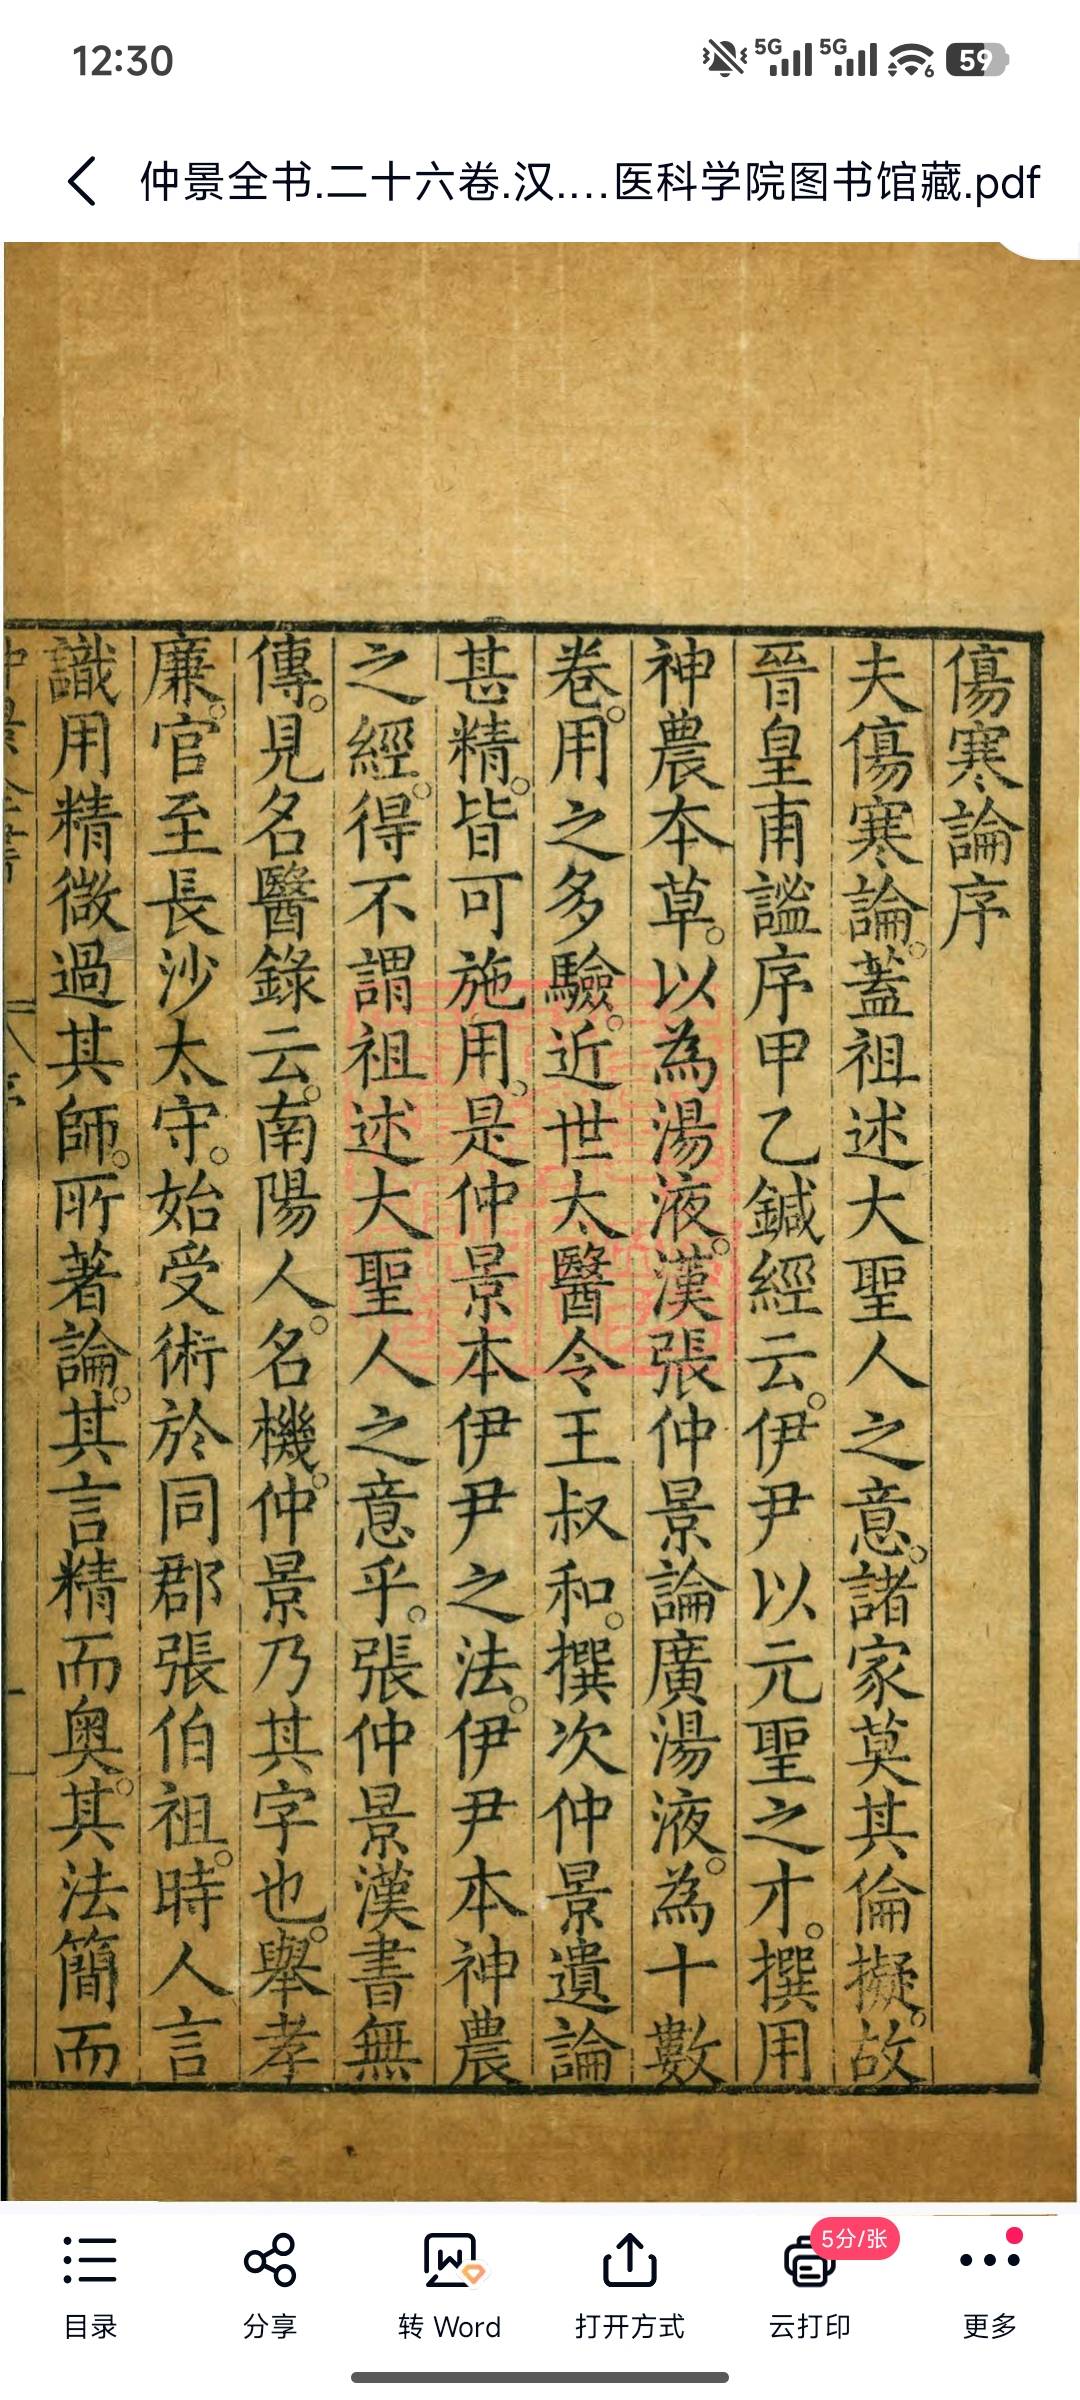 12:30
5G 5G 6 59
仲景全书.二十六卷.汉....医科学院图书馆藏.pdf
傷寒論序
夫傷寒論。蓋祖述大聖人之意。諸家莫其倫擬。故
晉皇甫謐序甲乙鍼經云。伊尹以元聖之才。撰用
神農本草。以為湯液。漢張仲景論廣湯液。為十數
卷。用之多驗。近世太醫令王叔和。撰次仲景遺論
甚精。皆可施用。是仲景本伊尹之法。伊尹本神農
之經。得不謂祖述大聖人之意乎。張仲景漢書無
傳。見名醫錄云。南陽人。名機。仲景乃其字也。舉孝
廉。官至長沙太守。始受術於同郡張伯祖。時人言
識用精微過其師。所著論。其言精而奧。其法簡而
目录
分享
转 Word
打开方式
5分/张
云打印
更多